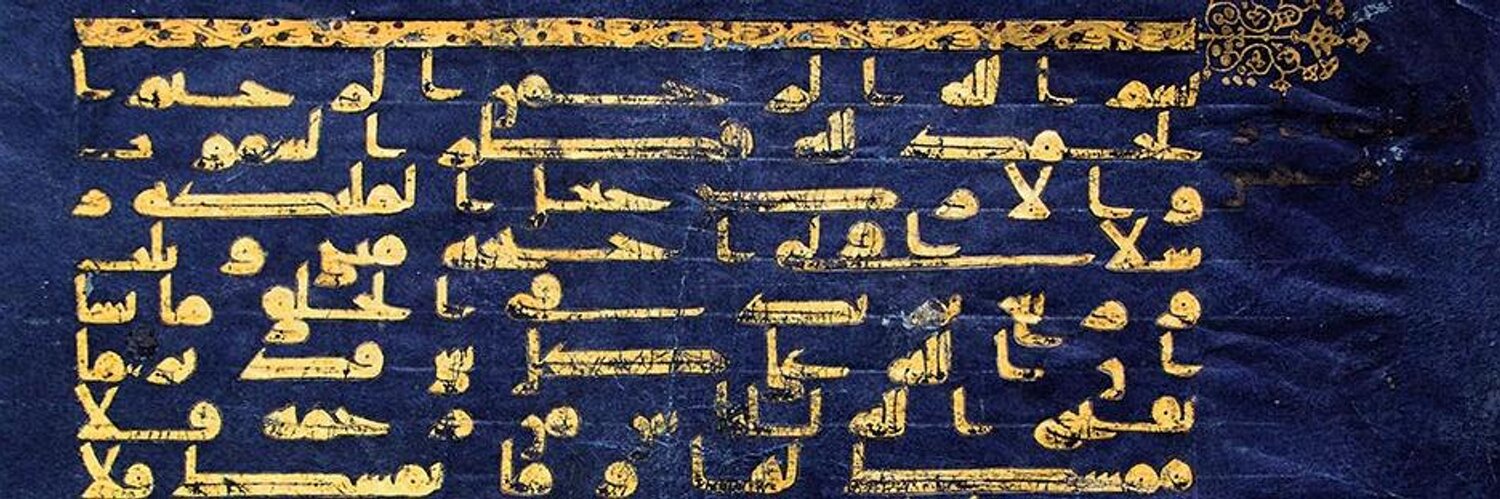 بسم الله الرحمن الرحيم ا
لحمد لله فطر السموت
والارض جعل الملئكة ر
سلا اولى اجنحة مثنى وثلث
وربع يزيد فى الخلق ما يشا
ان الله على كل شى قدير ما
يفتح الله للناس من رحمة فلا
ممسك لها وما يمسك فلا